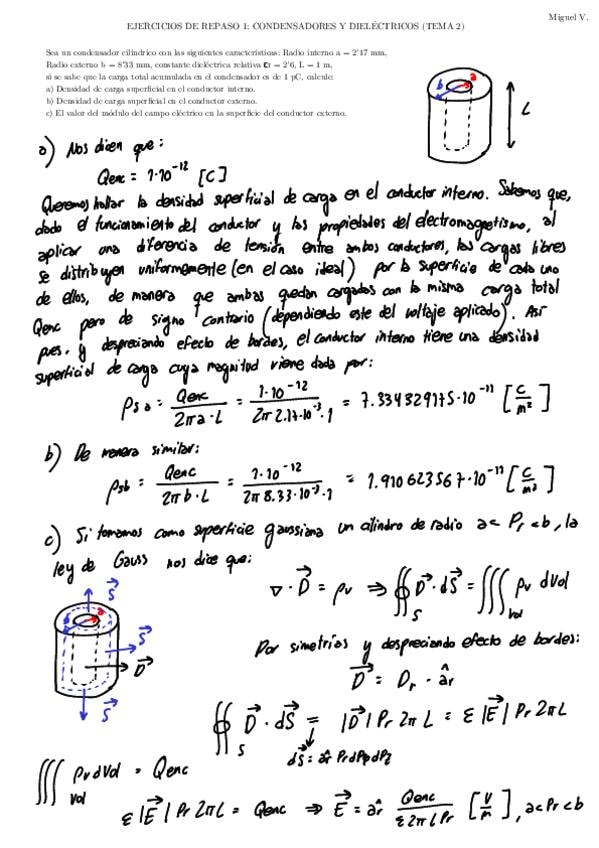 Miguel V.
EJERCICIOS DE REPASO 1: CONDENSADORES Y DIELÉCTRICOS (TEMA 2)
Sea un condensador cilíndrico con las siguientes características: Radio interno a = 2'17 mm,
Radio externo b = 8'33 mm, constante dieléctrica relativa εr = 2'6, L = 1 m,
si se sabe que la carga total acumulada en el condensador es de 1 pC, calcule:
a) Densidad de carga superficial en el conductor interno.
b) Densidad de carga superficial en el conductor externo.
c) El valor del módulo del campo eléctrico en la superficie del conductor externo.
b a
L
a) Nos dicen que:
Qenc = 1·10^-12 [C]
Queremos hallar la densidad superficial de carga en el conductor interno. Sabemos que,
dado el funcionamiento del conductor y las propiedades del electromagnetismo, al
aplicar una diferencia de tensión entre ambos conductores, las cargas libres
se distribuyen uniformemente (en el caso ideal) por la superficie de cada uno
de ellos, de manera que ambas quedan cargados con la misma carga total
Qenc pero de signo contrario (dependiendo este del voltaje aplicado). Así
pues, y despreciando efecto de bordes, el conductor interno tiene una densidad
superficial de carga cuya magnitud viene dada por:
ρsa = Qenc / 2πa·L = 1·10^-12 / 2π 2.17·10^-3·1 = 7.334329175·10^-11 [C/m²]
b) De manera similar:
ρsb = Qenc / 2πb·L = 1·10^-12 / 2π 8.33·10^-3·1 = 1.910623567·10^-11 [C/m²]
c) Si tomamos como superficie gaussiana un cilindro de radio a< Pr <b, la
ley de Gauss nos dice que:
∇·D⃗ = ρv ⇒ ∯S D⃗·dS⃗ = ∭Vol ρv dVol
S⃗
b a
S⃗
D⃗
S⃗
Por simetrías y despreciando efecto de bordes:
D⃗ = Dr · âr
∯S D⃗·dS⃗ = |D⃗| Pr 2π L = ε|E⃗| Pr 2πL
dS⃗ = âr Pr dPφ dPz
∭Vol ρv dVol = Qenc
ε|E⃗| Pr 2πL = Qenc ⇒ E⃗ = âr Qenc / ε 2πL Pr [V/m], a<Pr<b